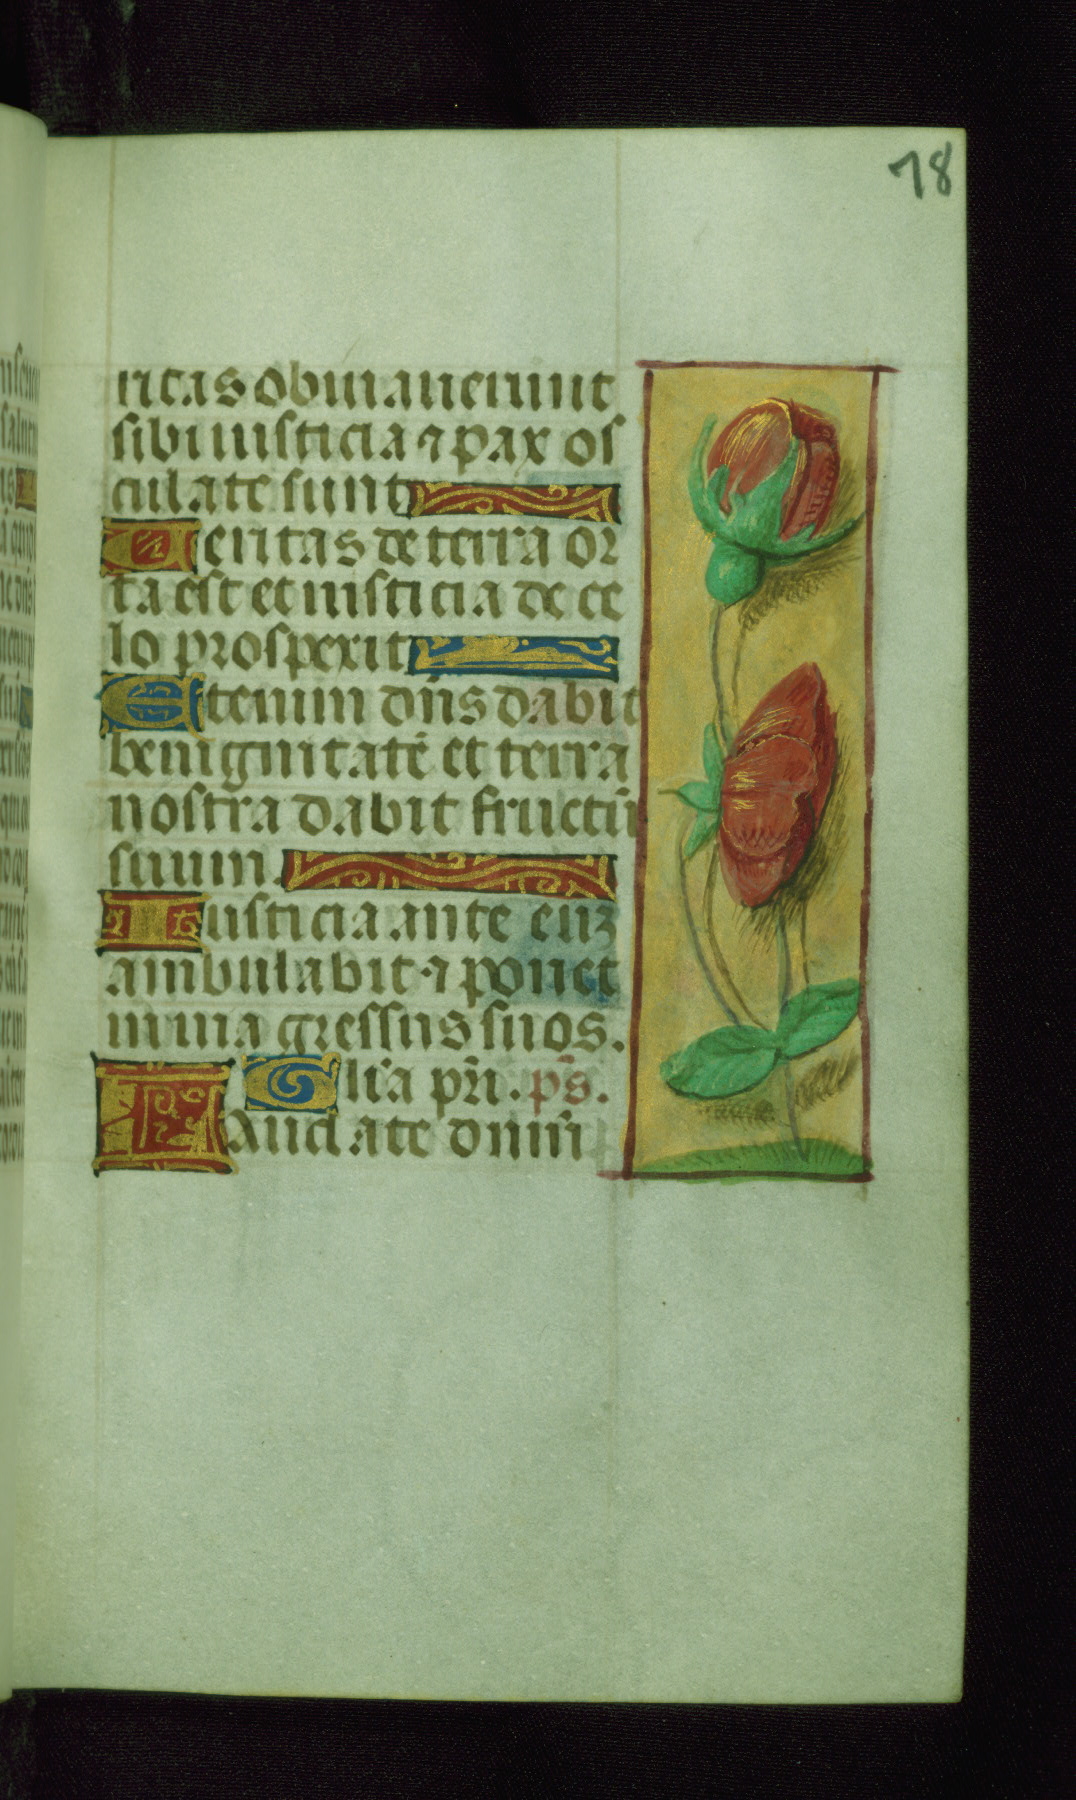 78
ritas obuiauerunt
sibi iusticia ⁊ pax os
culate sunt
Veritas de terra or
ta est et iusticia de ce
lo prospexit
Etenim dn̄s dabit
benignitatē et terra
nostra dabit fructū
suum.
Iusticia ante euꝫ
ambulabit · ⁊ ponet
in uia gressus suos.
Glīa pr̄i. ps̄.
Laudate dnm̄